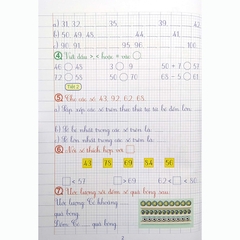 a) 31 32 35 39 42
b) 50 49 48 44 41
c) 90 91 95 96 100
4 Viết dấu >, < hoặc = vào
46 43 3 9 50 + 7 57
58 52 50 70 65 - 5 61
Tiết 2
5 Cho các số: 43, 92, 62, 65
a) Sắp xếp các số trên theo thứ tự từ bé đến lớn.
b) Số bé nhất trong các số trên là
c) Số lớn nhất trong các số trên là
6 Nối số thích hợp với
43 75 69 84 50
< 57 > 69 62 < < 50
7 Ước lượng rồi đếm số quả bóng sau.
Ước lượng: Có khoảng
quả bóng.
Đếm: Có ... quả bóng.